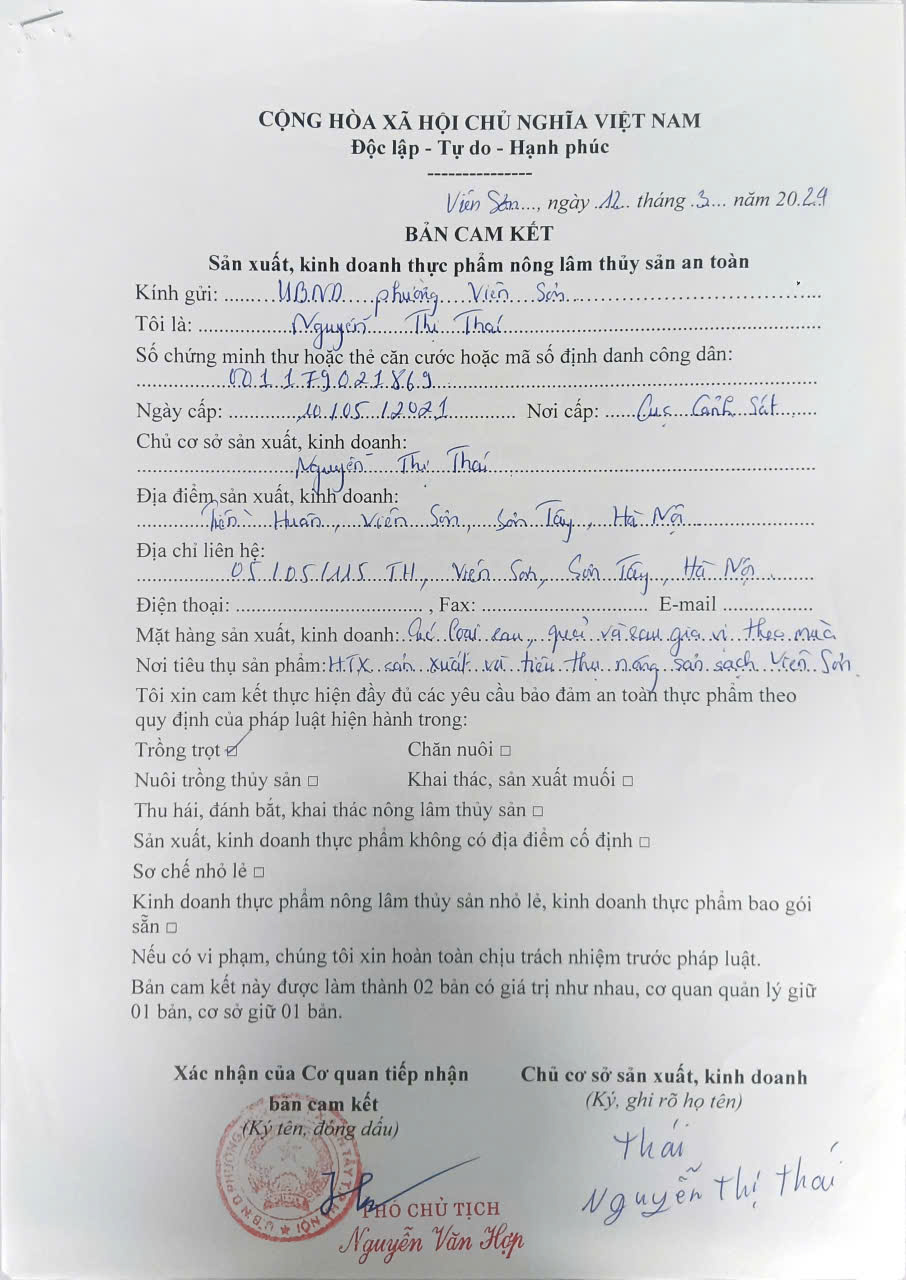 CỘNG HÒA XÃ HỘI CHỦ NGHĨA VIỆT NAM
Độc lập - Tự do - Hạnh phúc
---------------
Viên Sơn..., ngày .12.. tháng .3... năm 20.24
BẢN CAM KẾT
Sản xuất, kinh doanh thực phẩm nông lâm thủy sản an toàn
Kính gửi: UBND phường Viên Sơn
Tôi là: Nguyễn Thị Thái
Số chứng minh thư hoặc thẻ căn cước hoặc mã số định danh công dân:
001179021869
Ngày cấp: 10/05/2021 Nơi cấp: Cục Cảnh Sát
Chủ cơ sở sản xuất, kinh doanh:
Nguyễn Thị Thái
Địa điểm sản xuất, kinh doanh:
Tiền Huân, Viên Sơn, Sơn Tây, Hà Nội
Địa chỉ liên hệ:
05/05/115 TH, Viên Sơn, Sơn Tây, Hà Nội
Điện thoại: ................................ , Fax: ............................. E-mail ................
Mặt hàng sản xuất, kinh doanh: Các loại rau, quả và rau gia vị theo mùa
Nơi tiêu thụ sản phẩm: HTX sản xuất và tiêu thụ nông sản sạch Viên Sơn
Tôi xin cam kết thực hiện đầy đủ các yêu cầu bảo đảm an toàn thực phẩm theo
quy định của pháp luật hiện hành trong:
Trồng trọt ☑ Chăn nuôi □
Nuôi trồng thủy sản □ Khai thác, sản xuất muối □
Thu hái, đánh bắt, khai thác nông lâm thủy sản □
Sản xuất, kinh doanh thực phẩm không có địa điểm cố định □
Sơ chế nhỏ lẻ □
Kinh doanh thực phẩm nông lâm thủy sản nhỏ lẻ, kinh doanh thực phẩm bao gói
sẵn □
Nếu có vi phạm, chúng tôi xin hoàn toàn chịu trách nhiệm trước pháp luật.
Bản cam kết này được làm thành 02 bản có giá trị như nhau, cơ quan quản lý giữ
01 bản, cơ sở giữ 01 bản.
Xác nhận của Cơ quan tiếp nhận
bản cam kết
(Ký tên, đóng dấu)
PHÓ CHỦ TỊCH
Nguyễn Văn Hợp
Chủ cơ sở sản xuất, kinh doanh
(Ký, ghi rõ họ tên)
Thái
Nguyễn Thị Thái